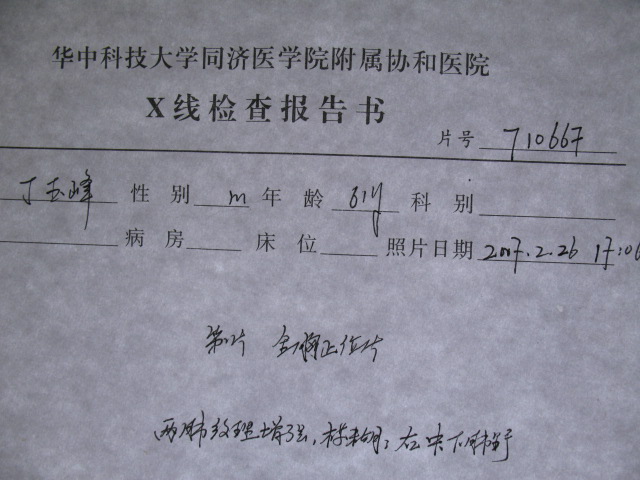 华中科技大学同济医学院附属协和医院
X线检查报告书
片号 710667
丁玉峰 性别 m 年龄 61y 科别
病房 床位 照片日期 2007.2.26 17:06
第1片 全胸正位片
两肺纹理增强,右中下肺野